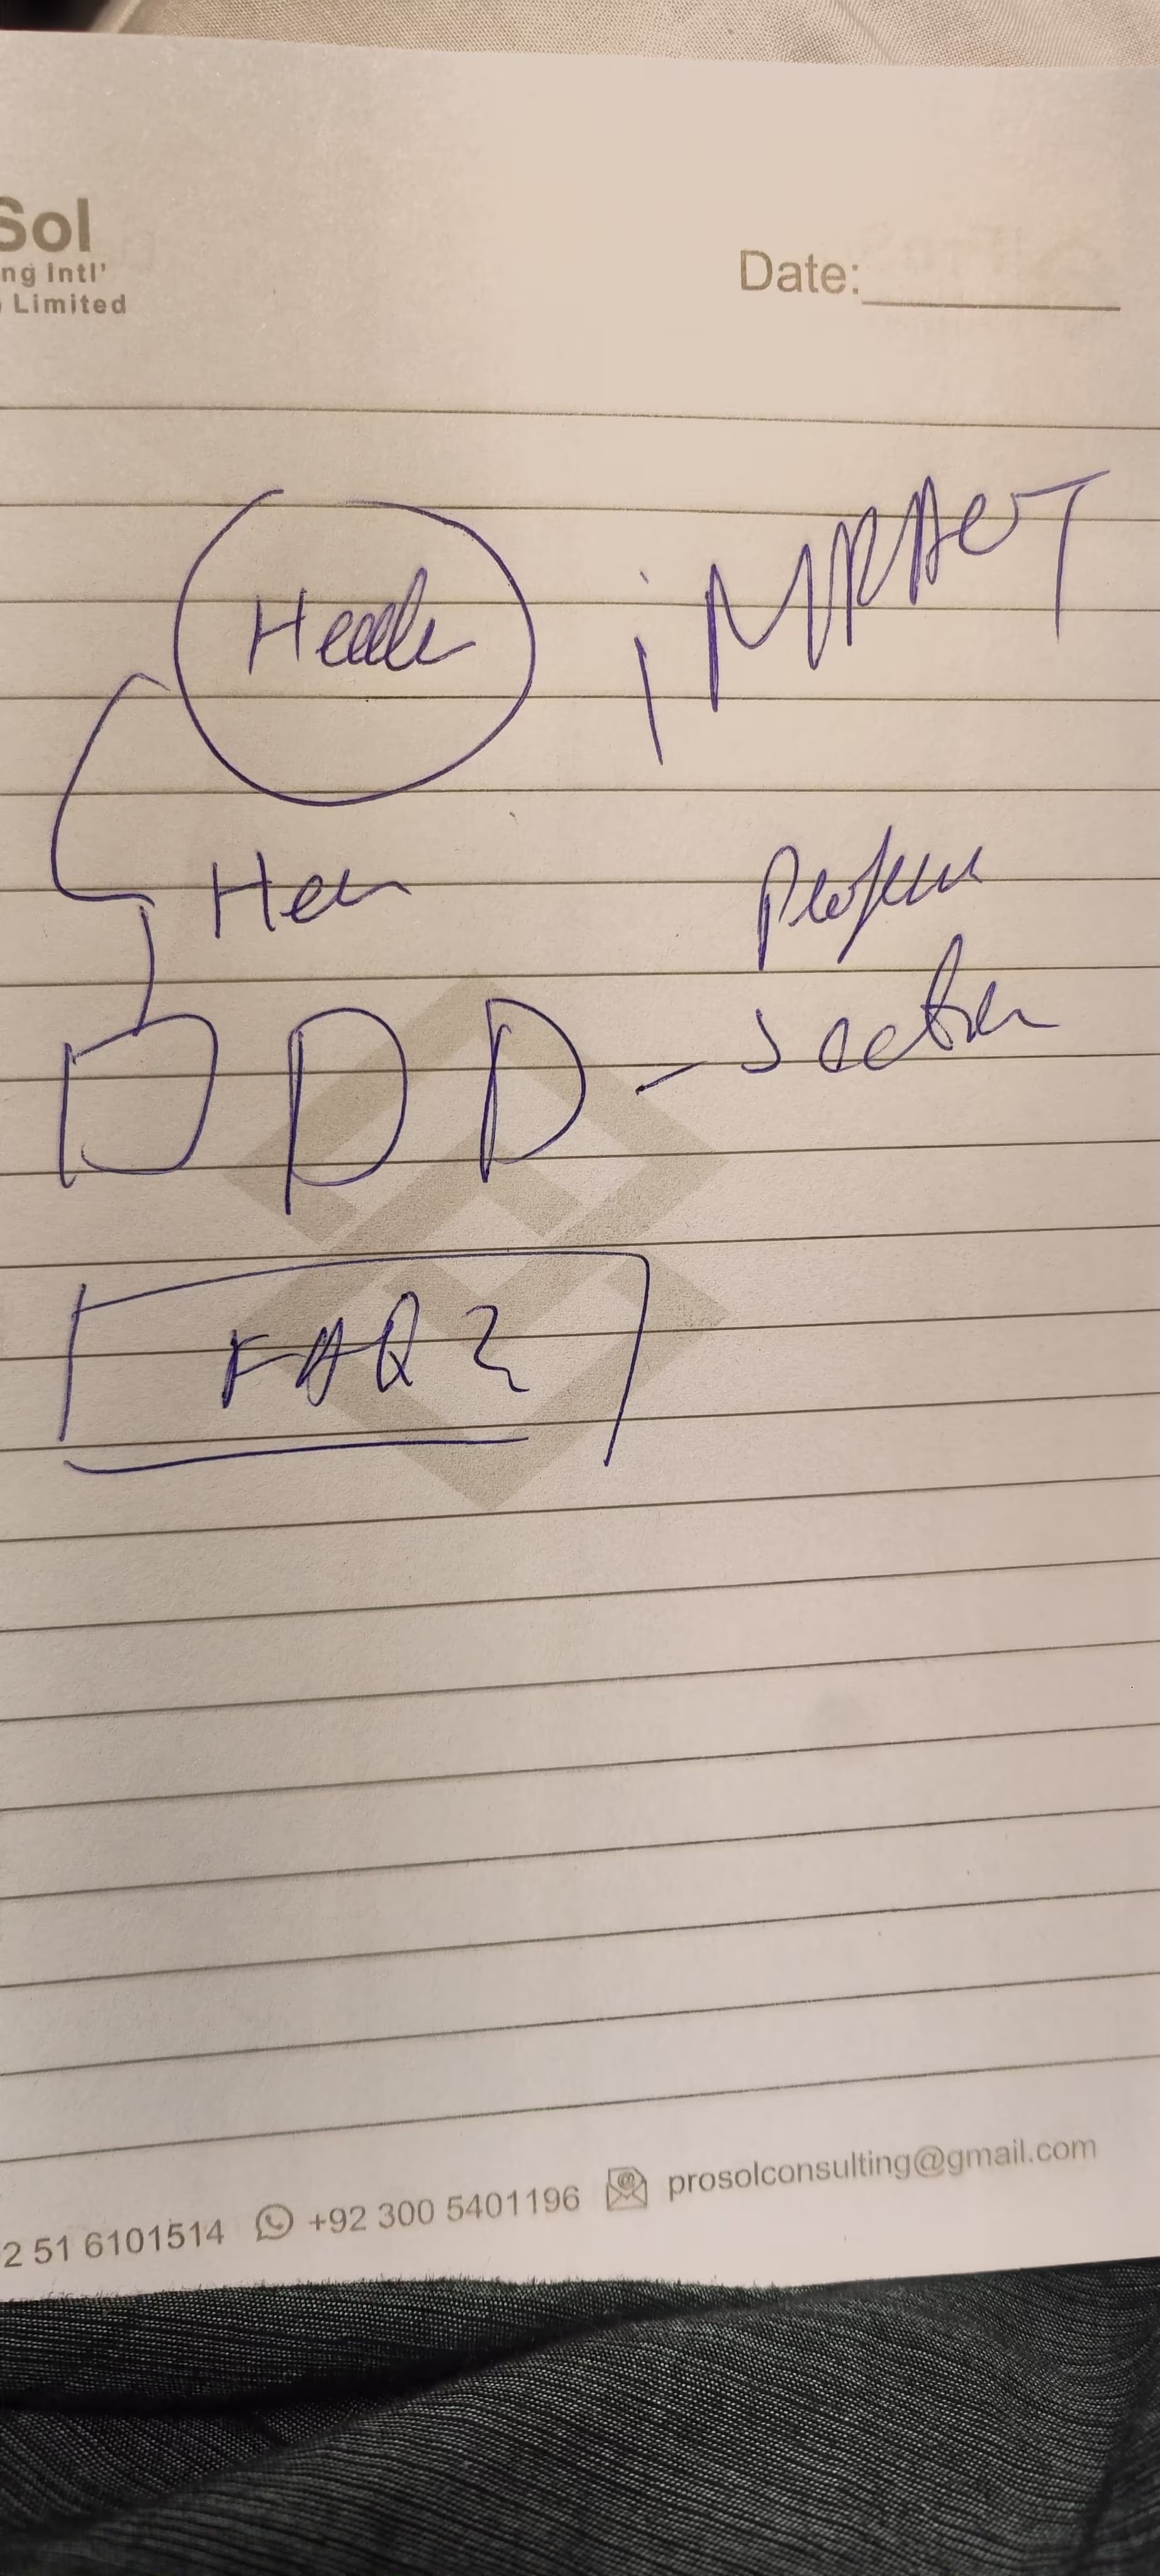 Sol
ng Intl'
Limited
Date:
Header
iMPACT
section
FAQ
2 51 6101514 +92 300 5401196 prosolconsulting@gmail.com